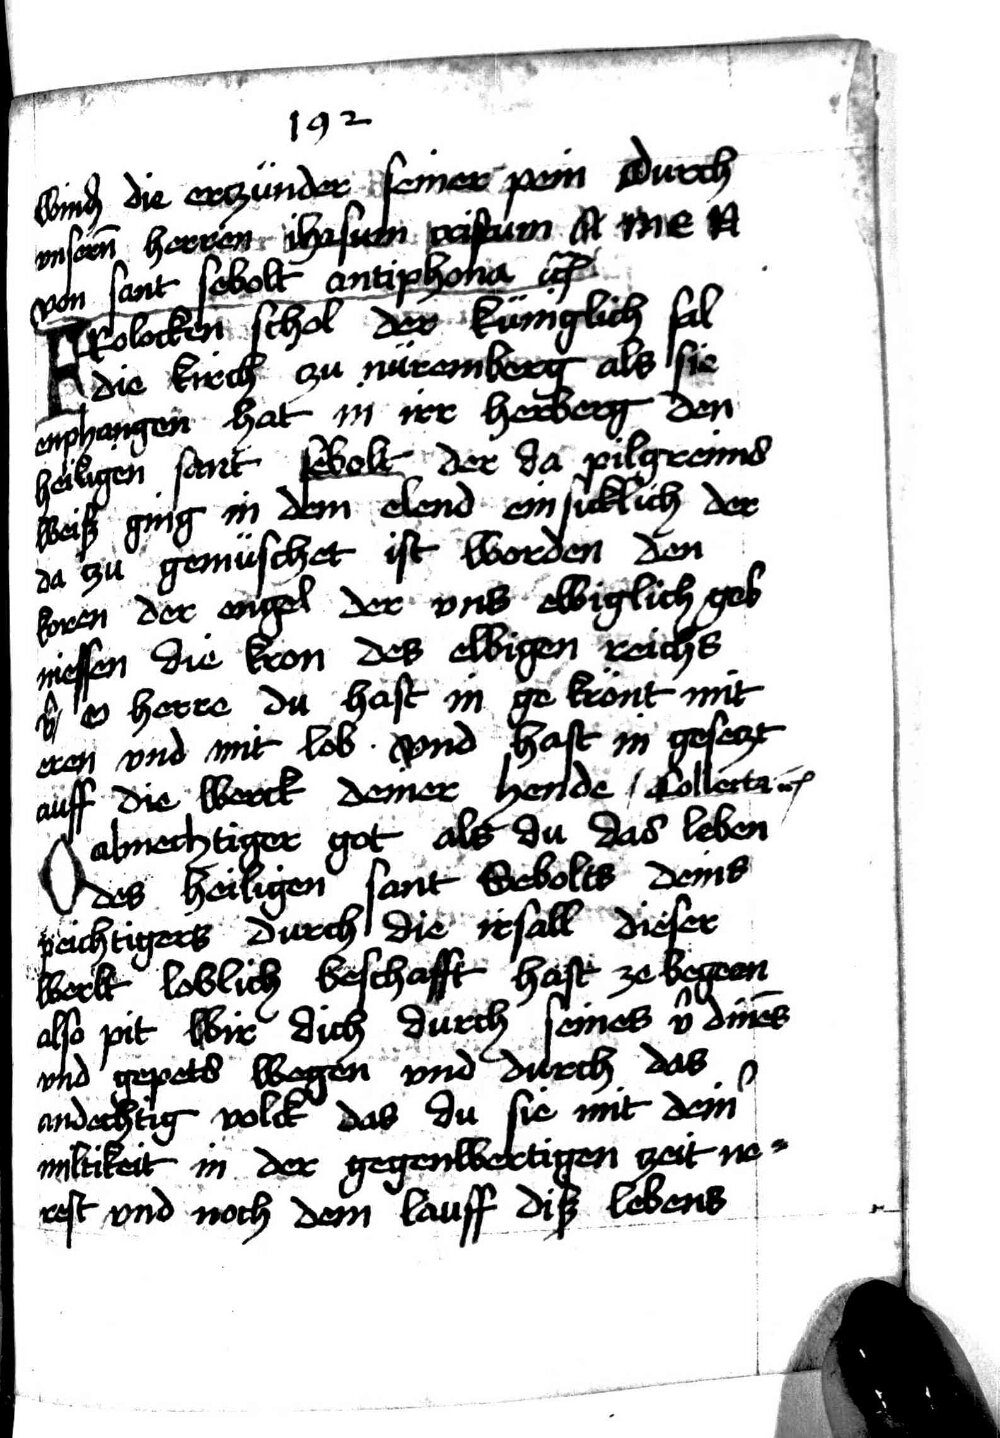 192
wind die erzünder seiner pein Durch
vnsern̄ herren ihesum cristum A M E N
von sant sebolt antiphona
FRolocken schol der küniglich sal
die kirch zu nüremberg als sie
enphangen hat in irr herberg den
heiligen sant sebolt der da pilgreims
weiß ging in dem elend einsicklich der
da zu gemüschet ist worden den
koren der engel der vns ewiglich geb
niessen die kron des ewigen reichs
v̂ O herre du hast in ge krönt mit
eren vnd mit lob . Vnd hast in gesetzt
auff die werck deiner hende / Collecta
O almechtiger got als du das leben
des heiligen sant Sebolts deins
peichtigers durch die irsall dieser
werlt loblich beschafft hast ze begeen
also pit wir dich durch seines v̂dinēs
vnd gepets wegen vnd durch das
andechtig volck das du sie mit dein
miltikeit in der gegenwertigen zeit ne=
rest vnd noch dem lauff diß lebens